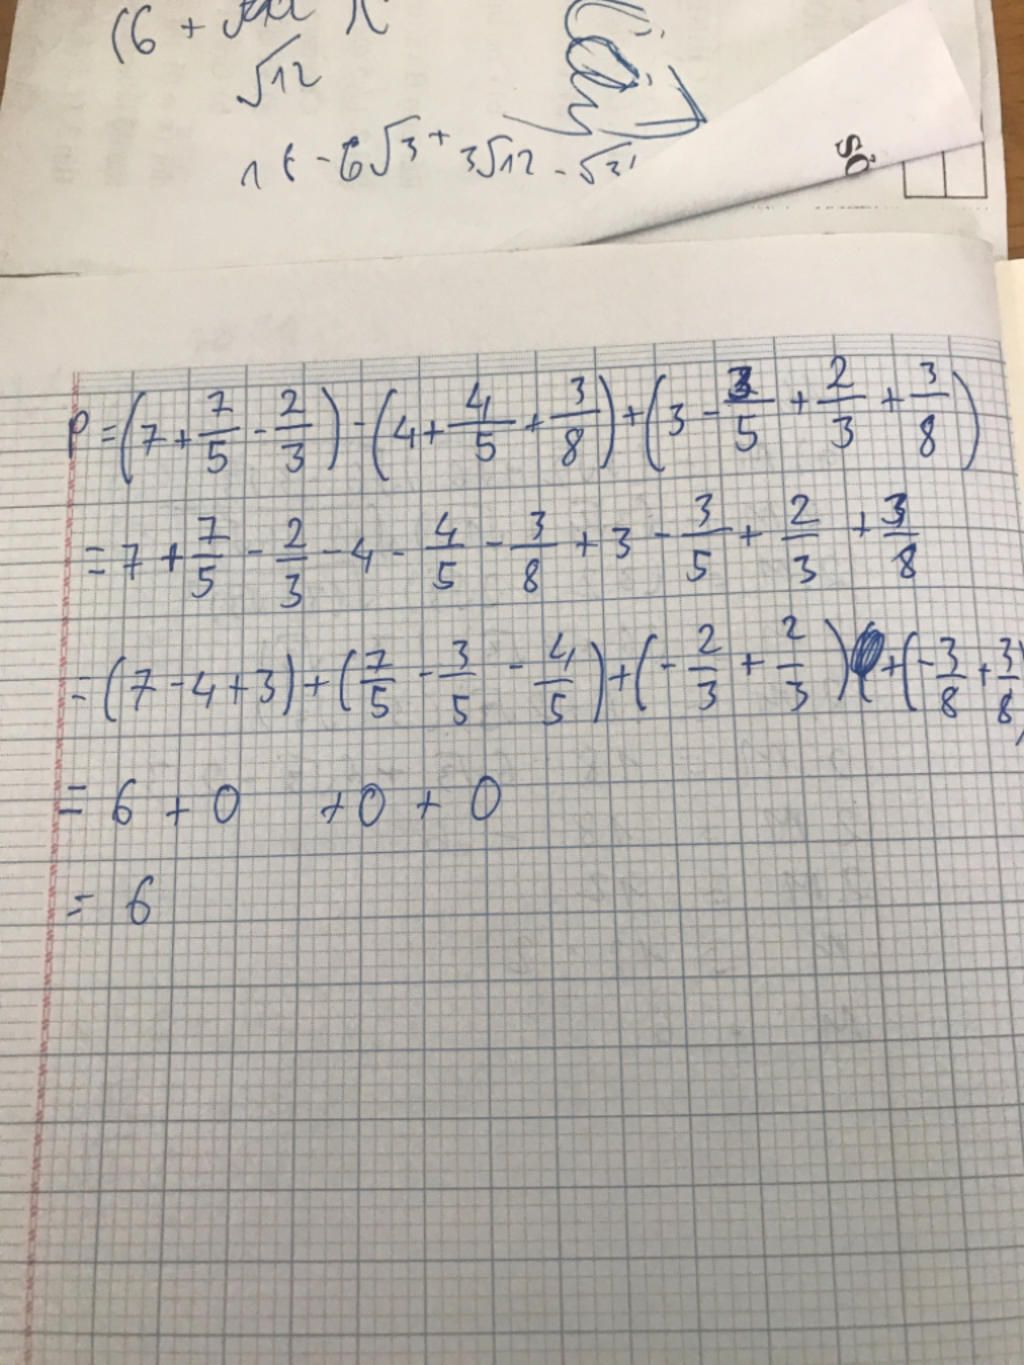 (6 +
√12
- 6√3 + 3√12 - √3
SỐ
P = (7 + 7/5 - 2/3) - (4 + 4/5 + 3/8) + (3 - 3/5 + 2/3 + 3/8)
= 7 + 7/5 - 2/3 - 4 - 4/5 - 3/8 + 3 - 3/5 + 2/3 + 3/8
= (7 - 4 + 3) + (7/5 - 3/5 - 4/5) + (- 2/3 + 2/3) + (- 3/8 + 3/8)
= 6 + 0 + 0 + 0
= 6